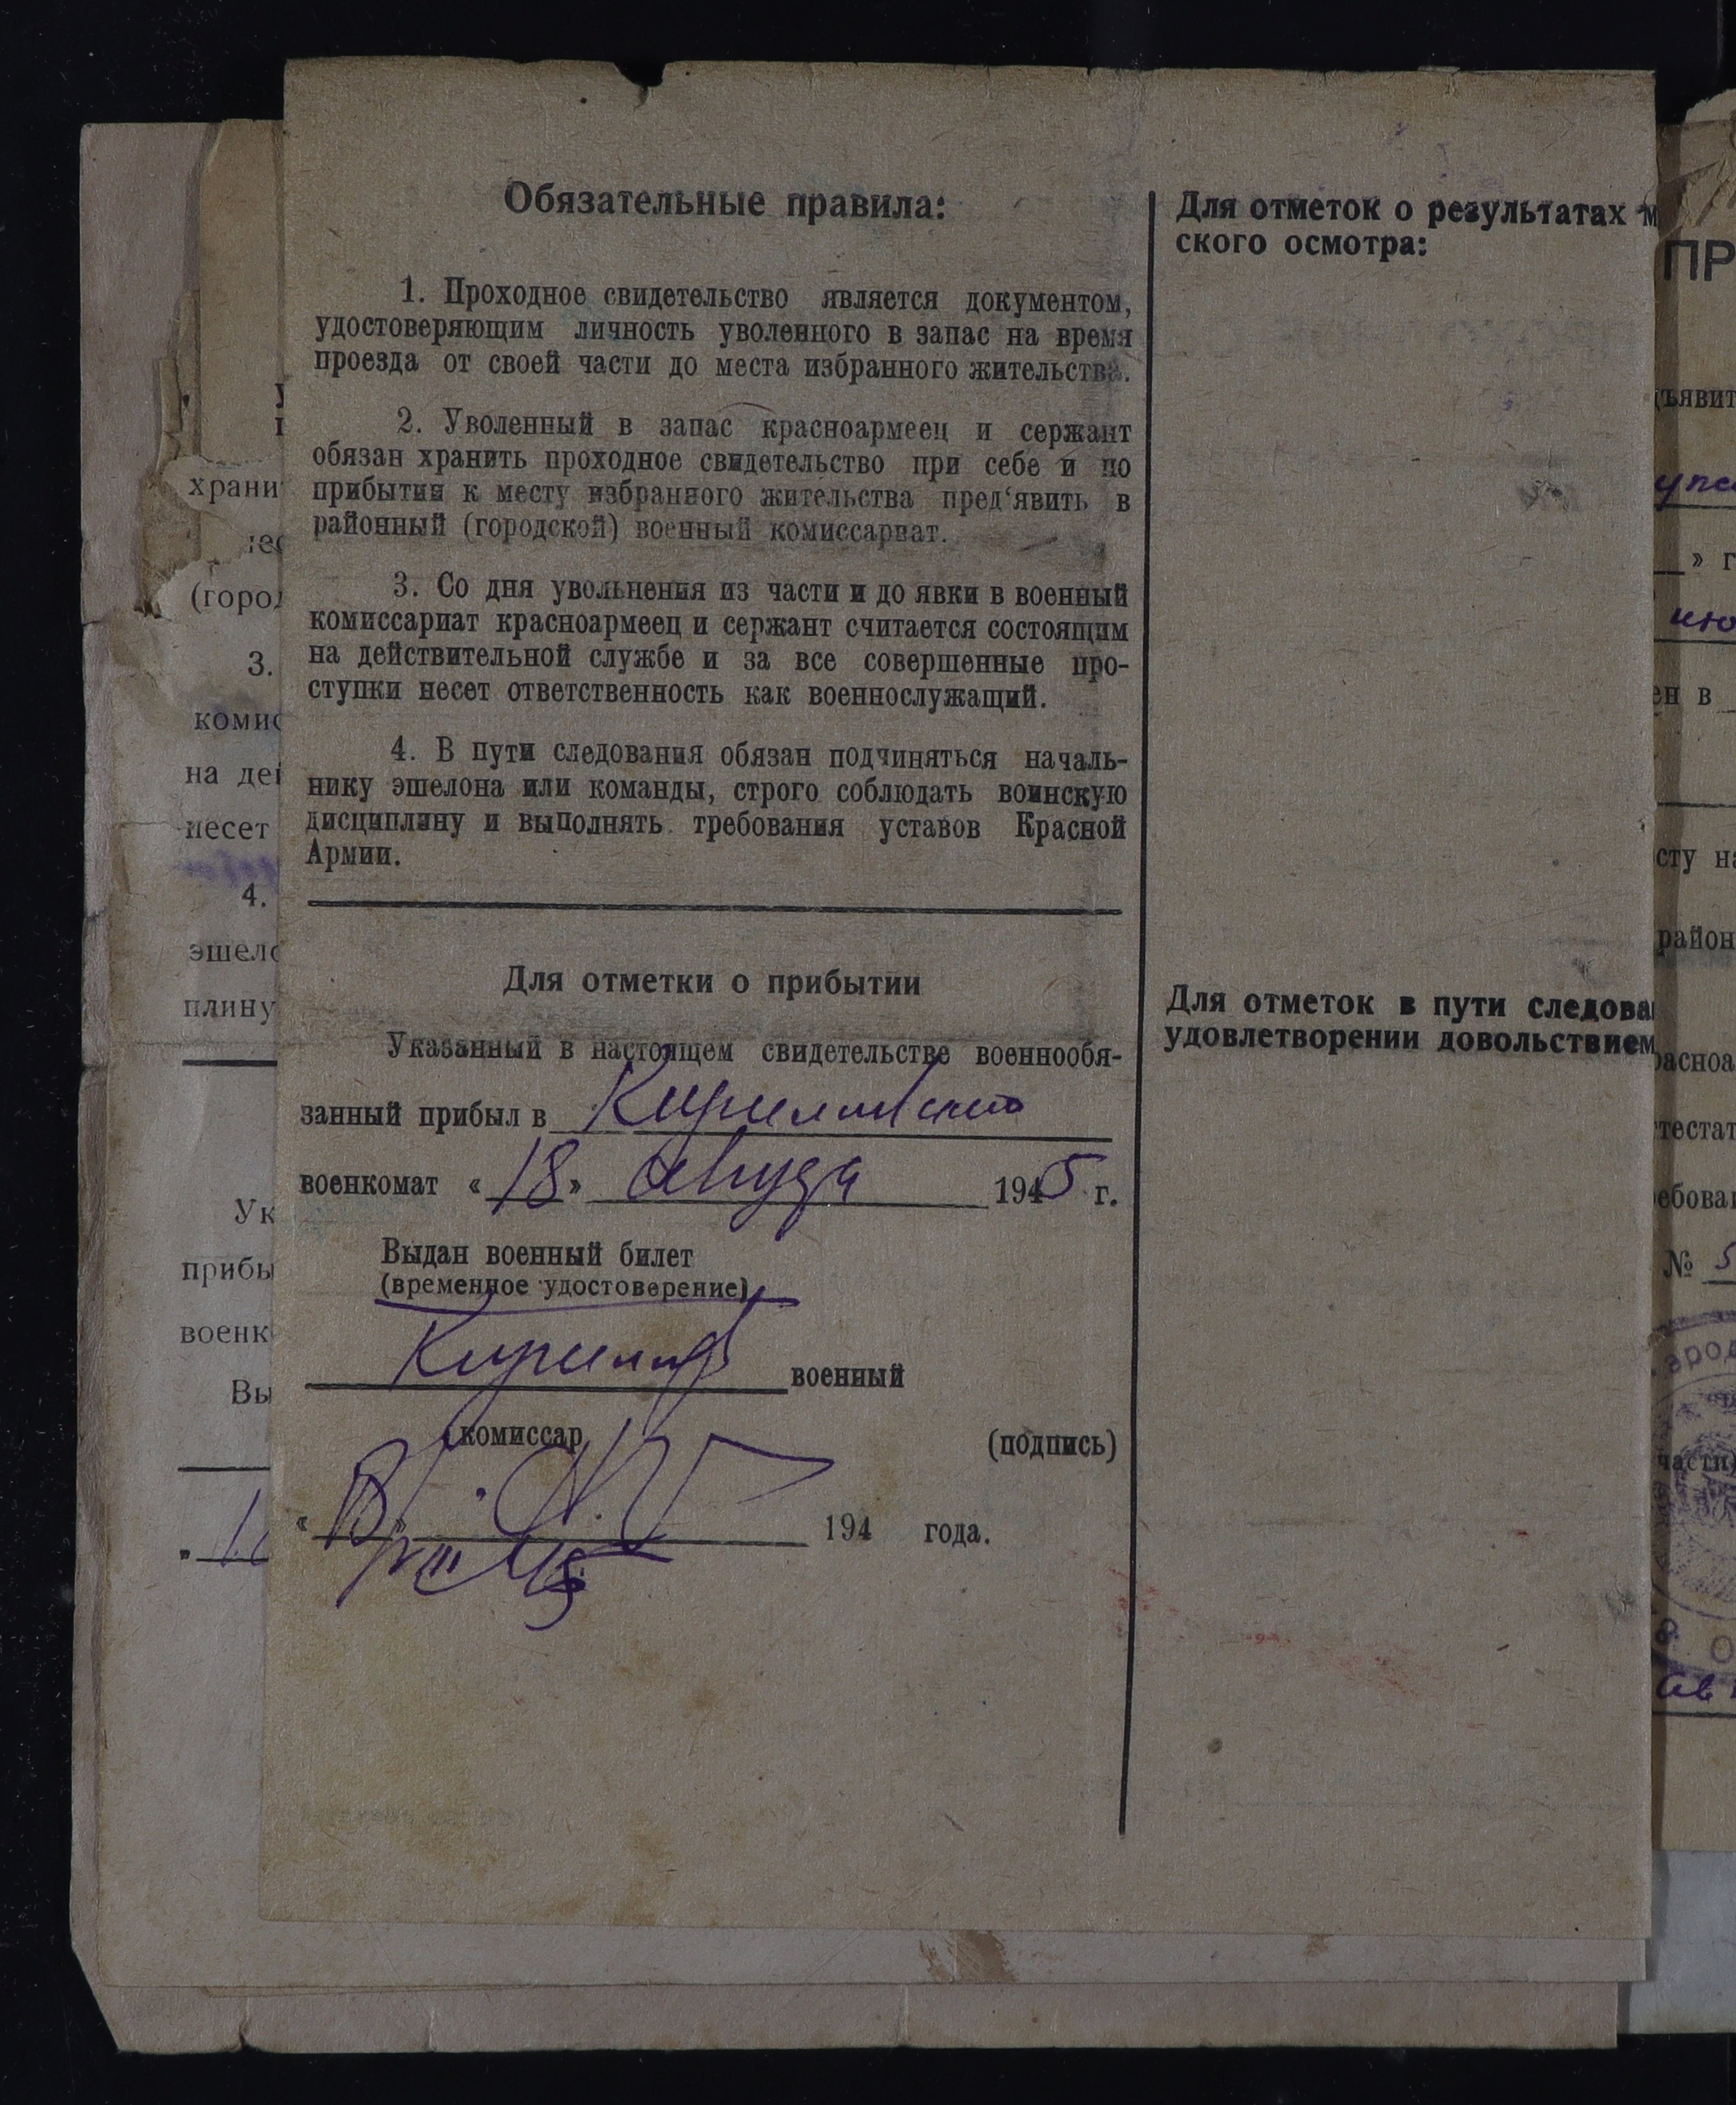 Обязательные правила:
1. Проходное свидетельство является документом,
удостоверяющим личность уволенного в запас на время
проезда от своей части до места избранного жительства.
2. Уволенный в запас красноармеец и сержант
обязан хранить проходное свидетельство при себе и по
прибытии к месту избранного жительства пред‘явить в
районный (городской) военный комиссариат.
3. Со дня увольнения из части и до явки в военный
комиссариат красноармеец и сержант считается состоящим
на действительной службе и за все совершенные про-
ступки несет ответственность как военнослужащий.
4. В пути следования обязан подчиняться началь-
нику эшелона или команды, строго соблюдать воинскую
дисциплину и выполнять требования уставов Красной
Армии.
Для отметки о прибытии
Указанный в настоящем свидетельстве военнообя-
занный прибыл в Кирилловский
военкомат «18» августа 1945 г.
Выдан военный билет
(временное удостоверение)
военный
комиссар
(подпись)
194 года.
Для отметок о результатах м
ского осмотра:
Для отметок в пути следова
удовлетворении довольствием
храни
(горо
3.
комис
на де
несет
4.
эшело
плину
Ук
прибы
военк
Вы
ПР
ъявит
» г
ию
ен в
сту н
район
расноа
тестат
ребова
№ 5
части